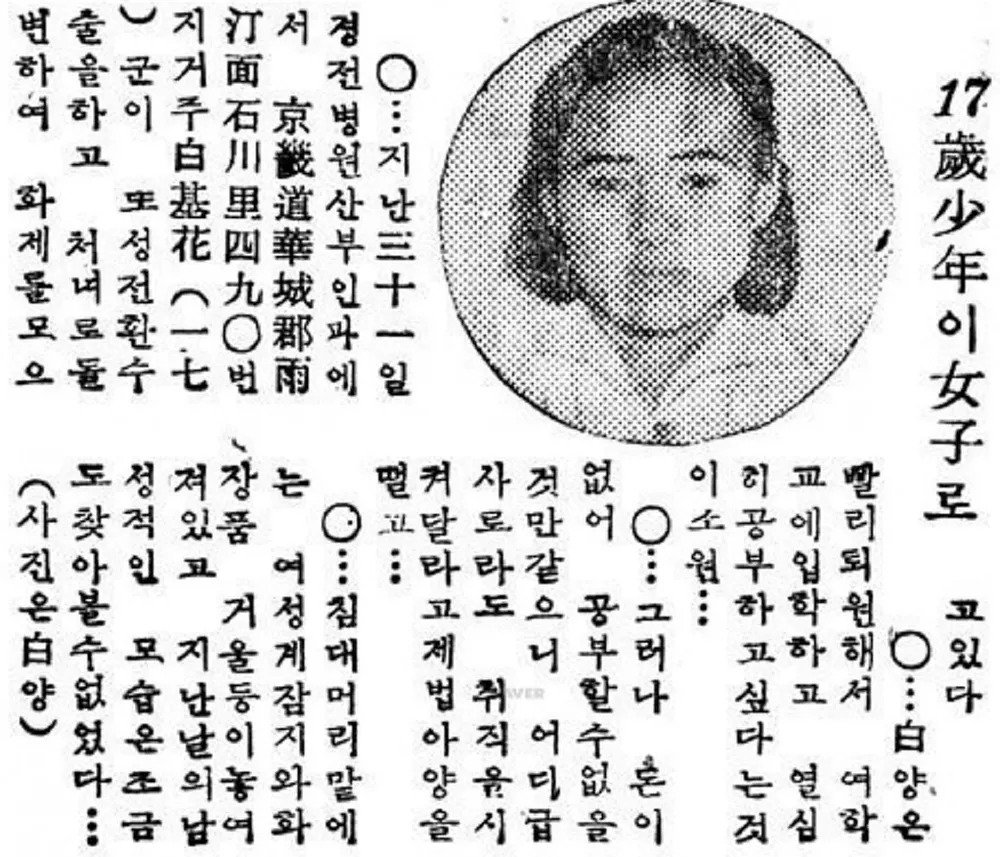 17歲少年이女子로
○…지난三十一일
경전병원산부인과에
서 京畿道華城郡雨
汀面石川里四九○번
지거주白基花(一七
)군이 또성전환수
술을하고 처녀로돌
변하여 화제를모으
고있다
○…白양은
빨리퇴원해서 여학
교에입학하고 열심
히공부하고싶다는것
이소원…
○…그러나 돈이
없어 공부할수없을
것만같으니 어디급
사로라도 취직을시
켜달라고제법아양을
떨고…
○…침대머리맡에
는 여성계잡지와화
장품 거울등이놓여
져있고 지난날의남
성적인 모습은조금
도찾아볼수없었다…
(사진은白양)